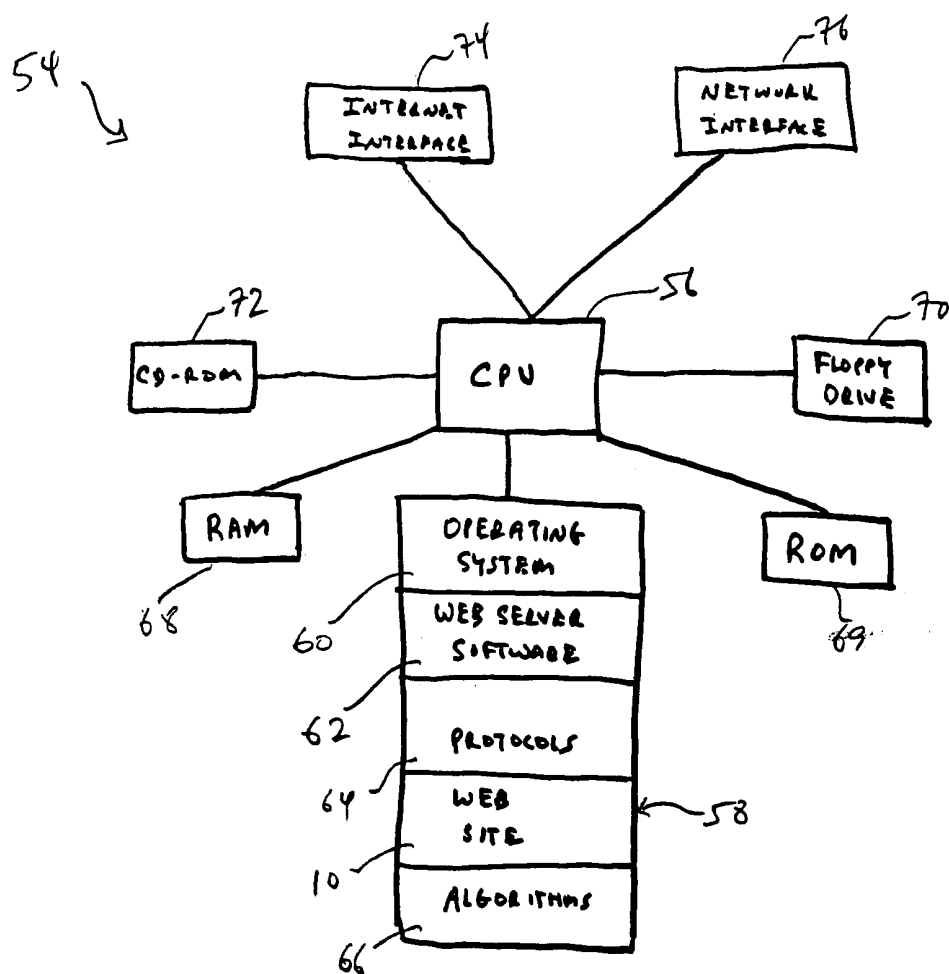 54
74
76
INTERNET
INTERFACE
NETWORK
INTERFACE
72
56
70
CD-ROM
CPU
FLOPPY
DRIVE
RAM
68
OPERATING
SYSTEM
60
ROM
69
WEB SERVER
SOFTWARE
62
PROTOCOLS
64
WEB
SITE
10
58
ALGORITHMS
66